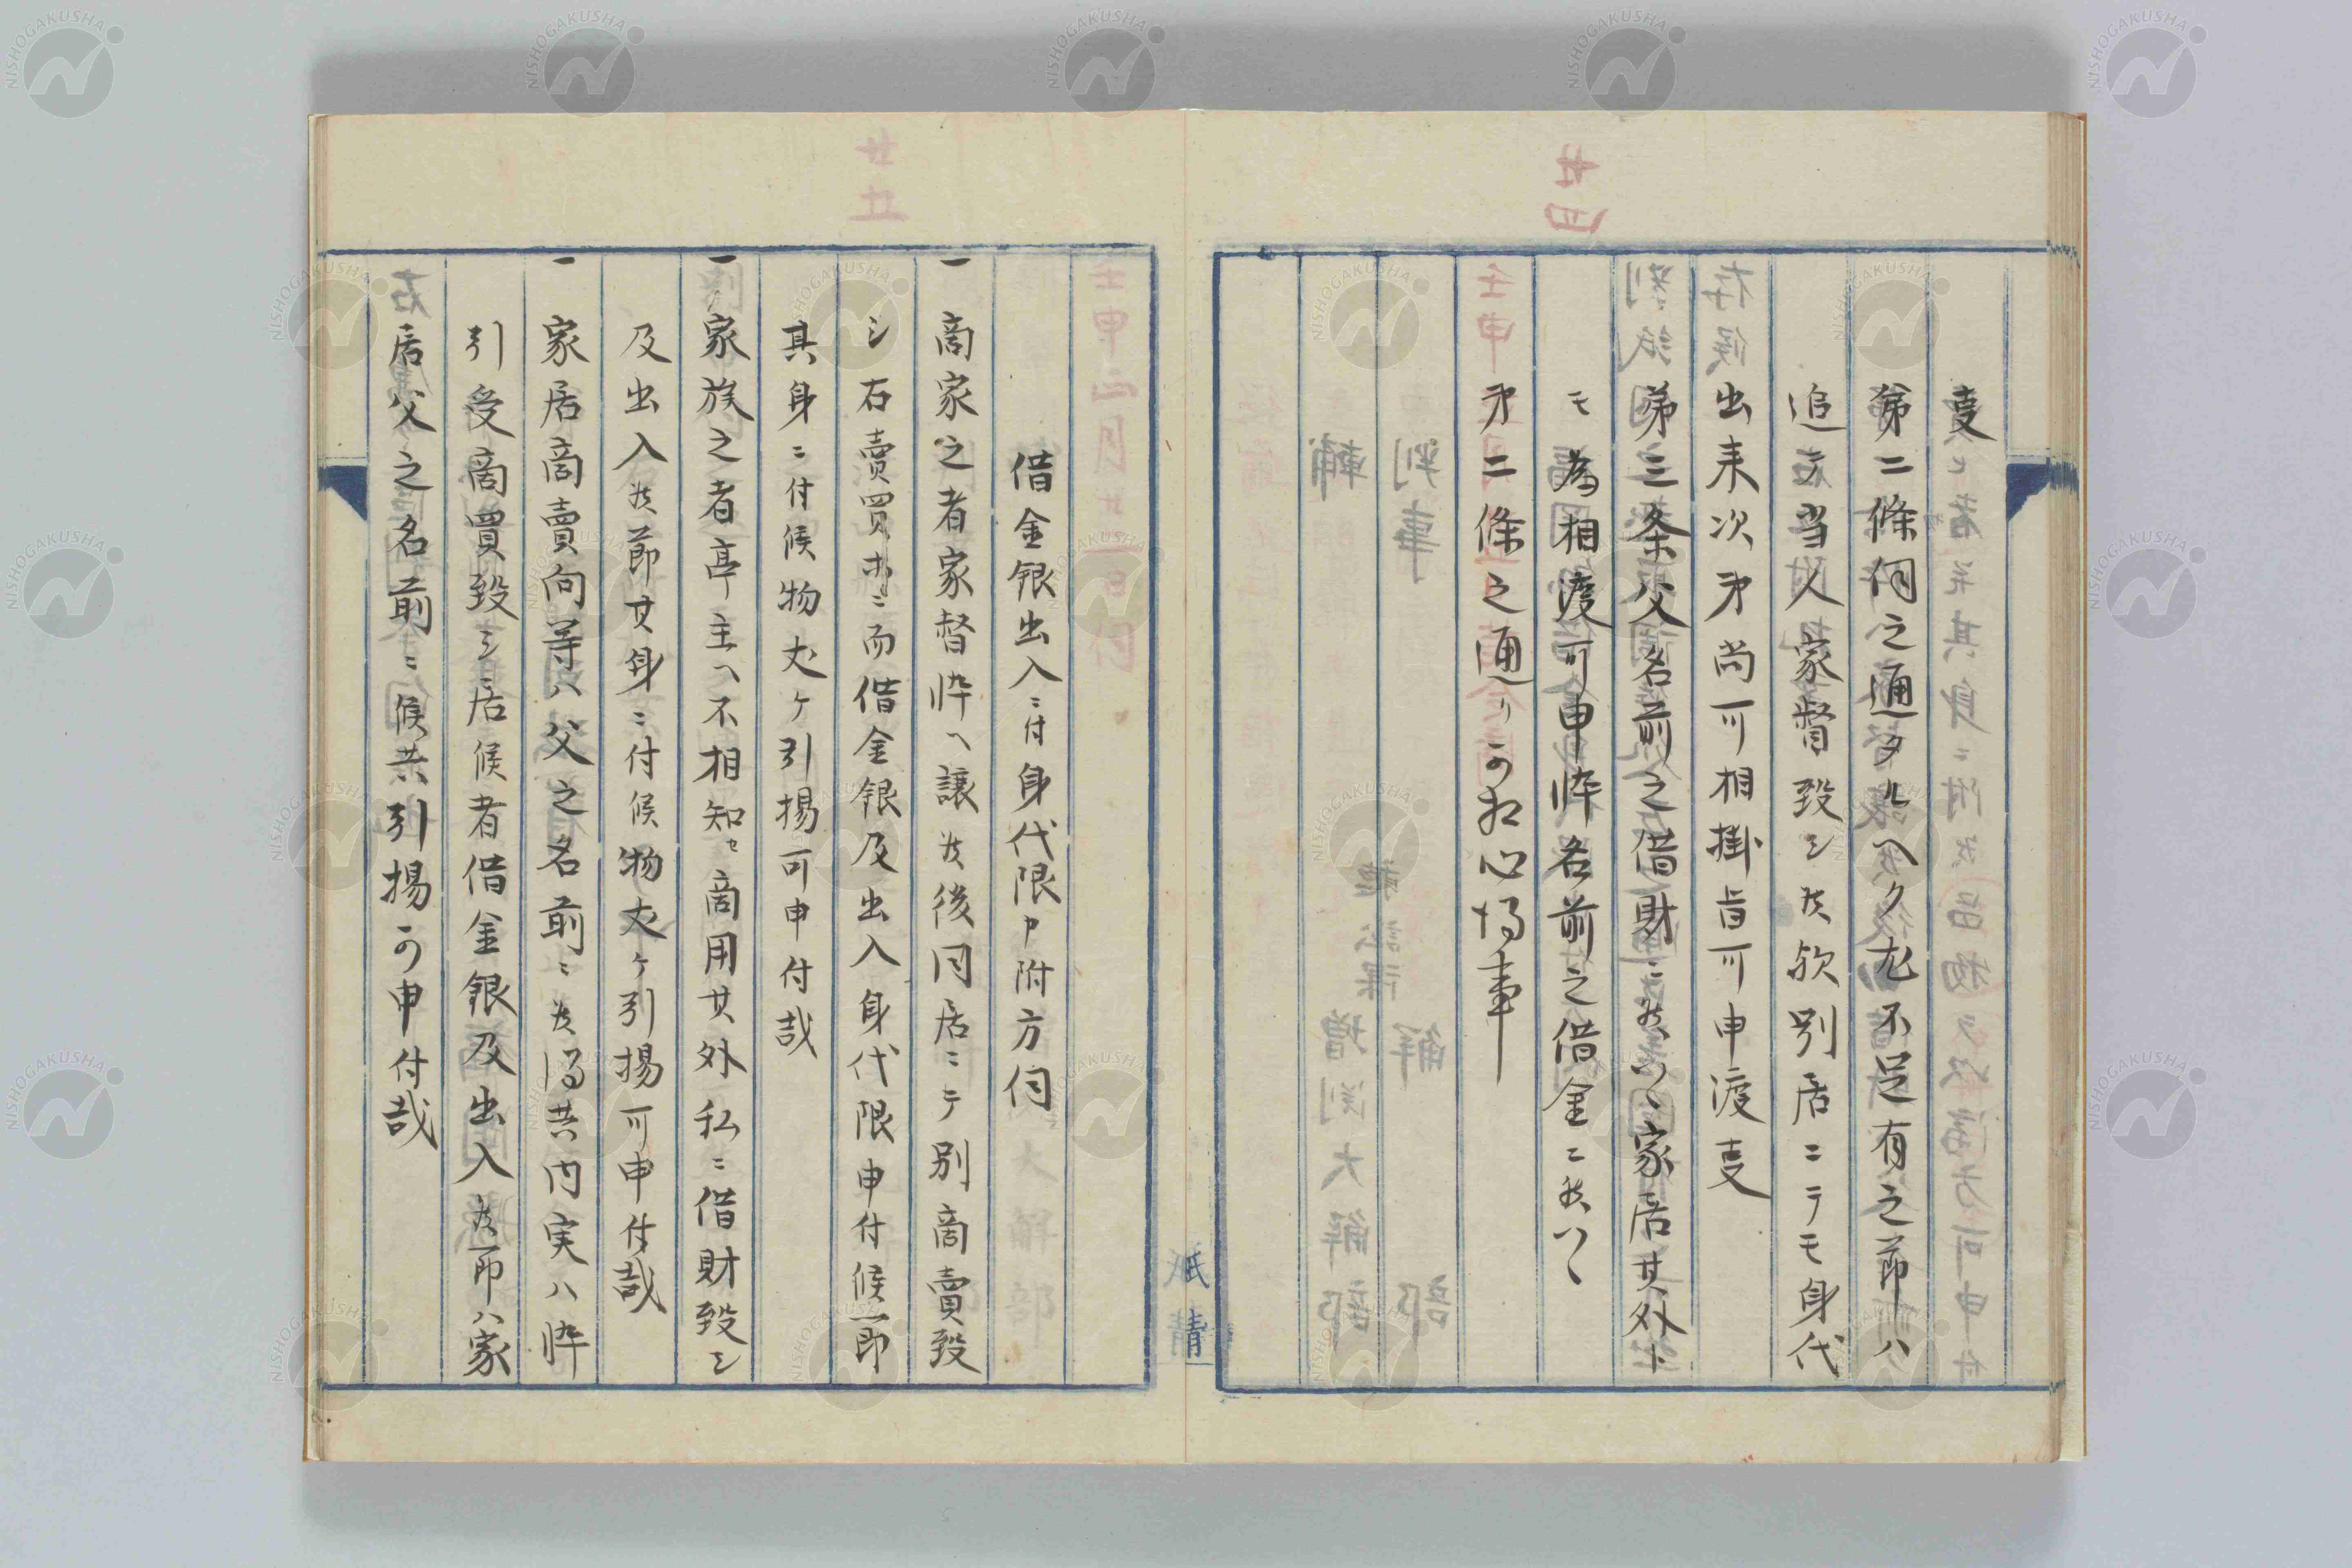 叓
第二條伺之通タルヘク尤不足有之節ハ
追テ当人家督致シ候欤別居ニテモ身代
出来次第尚可相掛旨可申渡叓
第三条父名前之借財ニ候ハヽ家居其外ト
モ為相渡可申悴名前之借金ニ候ハヽ
第二條之通リ可相心得事
借金銀出入ニ付身代限申附方伺
一商家之者家督悴ヘ譲候後同居ニテ別商賣致
シ右賣買ホニ而借金銀及出入身代限申付候節
其身ニ付候物丈ケ引揚可申付哉
一家族之者亭主ヘ不相知セ商用其外私ニ借財致シ
及出入候節其身ニ付候物丈ケ引揚可申付哉
一家居商賣向等ハ父之名前ニ候得共内実ハ悴
引受商買致シ居候者借金銀及出入候節ハ家
居父之名前ニ候共引揚可申付哉
廿四
廿五
NISHOGAKUSHA